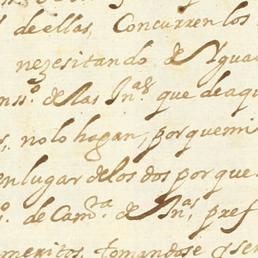 de ellas, Concurren los
nezesitando de Agua
ns.º de las Jn.ªˢ que de aqu
s, no lo hagan, porque mi
en lugar de los dos por que
º. de Cam.ª de Jn.ªˢ, pref
meritos, tomandose g ser